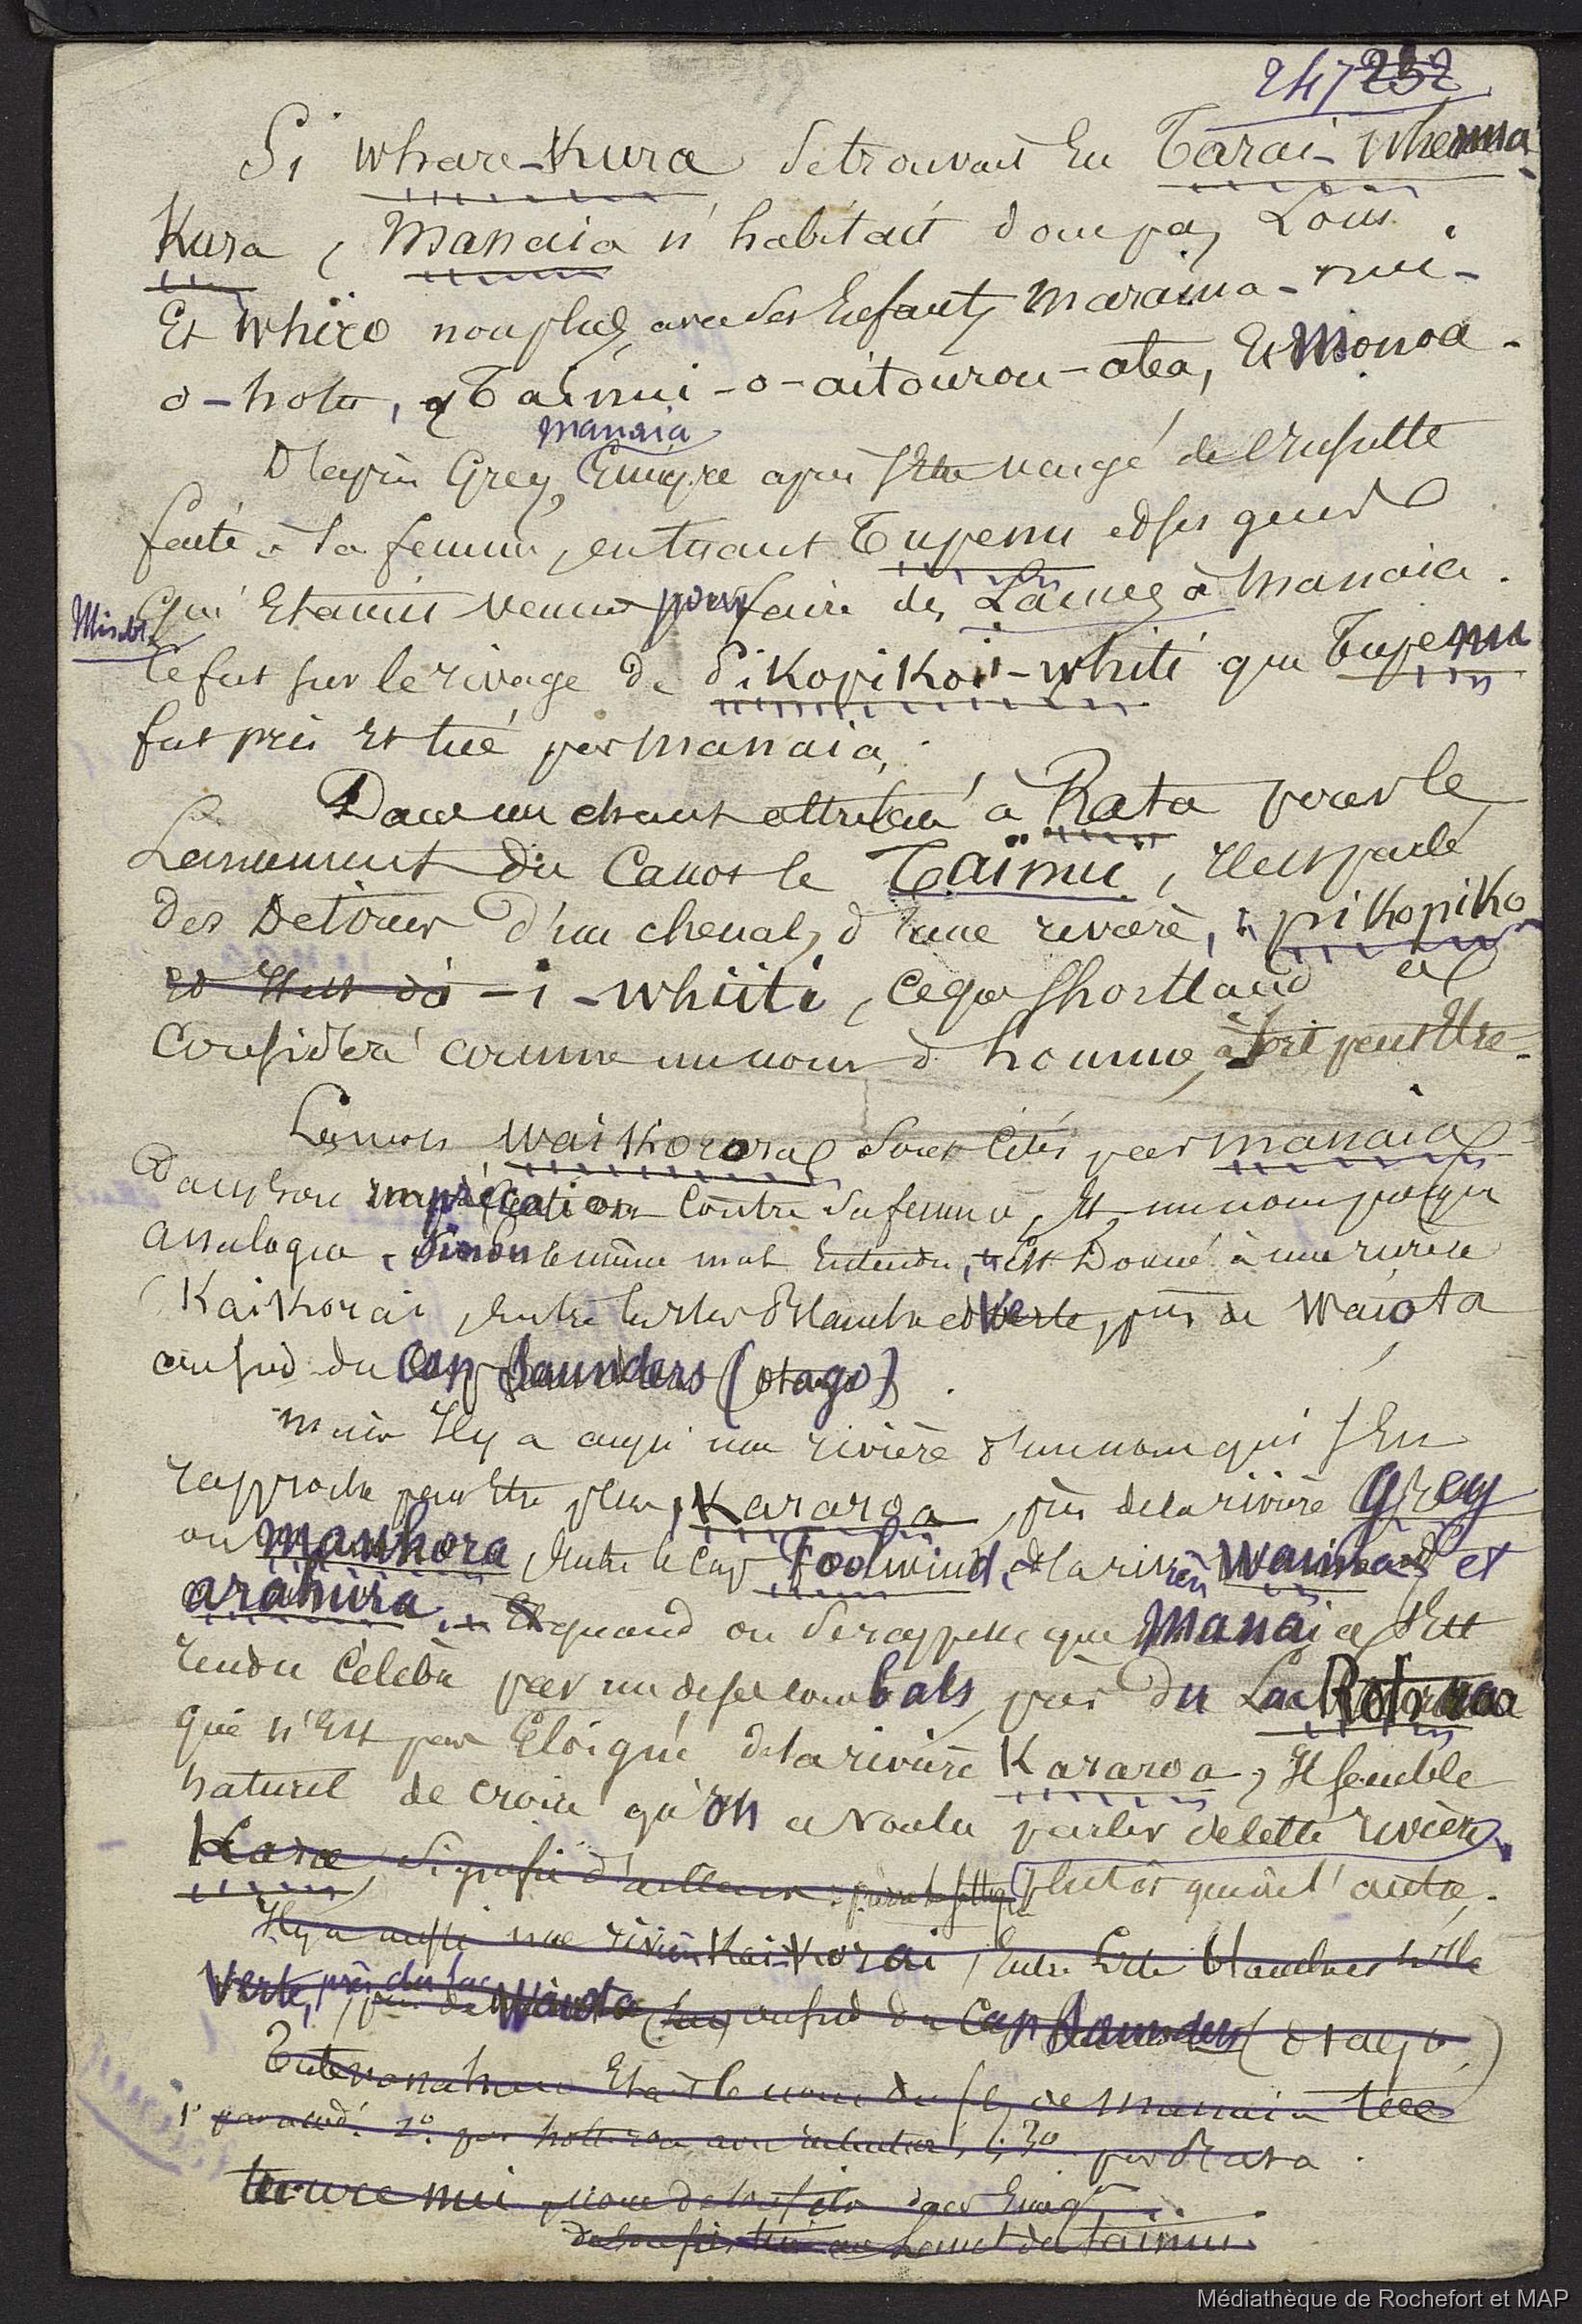 247 232
Si Whare-Kura se trouvait en Tarai-Whenua-
Kura, Manaia n'habitait donc pas loin
Et Whiro non plus, avec ses Enfants Marama-nui-
o-hotu, Taïnui-o-aitourou-atea, Et Monoa.
manaia
D'après Grey, Emigre après s'être vengé de l'insulte
faite à sa femme, en tuant Tupenu et ses gens
qui Etaient venus pour faire des Lances à Manaia.
Ce fut sur le rivage de Pikopikoi-whiti que Tupenu
fut pris et tué par Manaia.
Dans un chant attribué à Rata pour le
Lancement du Canot le Taïnui, il est parlé
des Detours d'un chenal, d'une rivière, pikopiko
-i-whiiti, ce que Shortland a
Considéré comme un nom d'homme, à tort peut Etre.
Les mots Waikorora sont cités par Manaia
Dans son imprécation contre sa femme, Et un nom presque
analogue, sinon le même mal Entendu, est Donné à une rivière
Kaikorai, entre les îles Blanche et Verte, près de Waiota
au sud du Cap Saunders (Otago).
mais Il y a aussi une rivière d'un nom qui s'en
rapproche peut Etre plus, Kararoa, près de la rivière Grey
ou Mawhora, entre le Cap Foolwind, et la rivière et
arahura. Et quand on se rappelle que Manaia s'Est
rendu Célèbre par un de ses combats près du Lac Rotorua
qui n'Est pas Eloigné de la rivière Kararoa, Il semble
naturel de croire qu'on a voulu parler de cette rivière
Kara, Signifie d'ailleurs plutôt que de l'autre.
Il y a aussi une rivière Kai-Korai, Entre l'île blanche et l'île
Verte, près du lac Waiota (lac) au sud du Cap Saunders (Otago)
Etait le nom du fils de Manaia tué
1° 2° par 3° par Rata.
nui nom de son fils
de son fils tué au Lancement du Taïnui.
Médiathèque de Rochefort et MAP